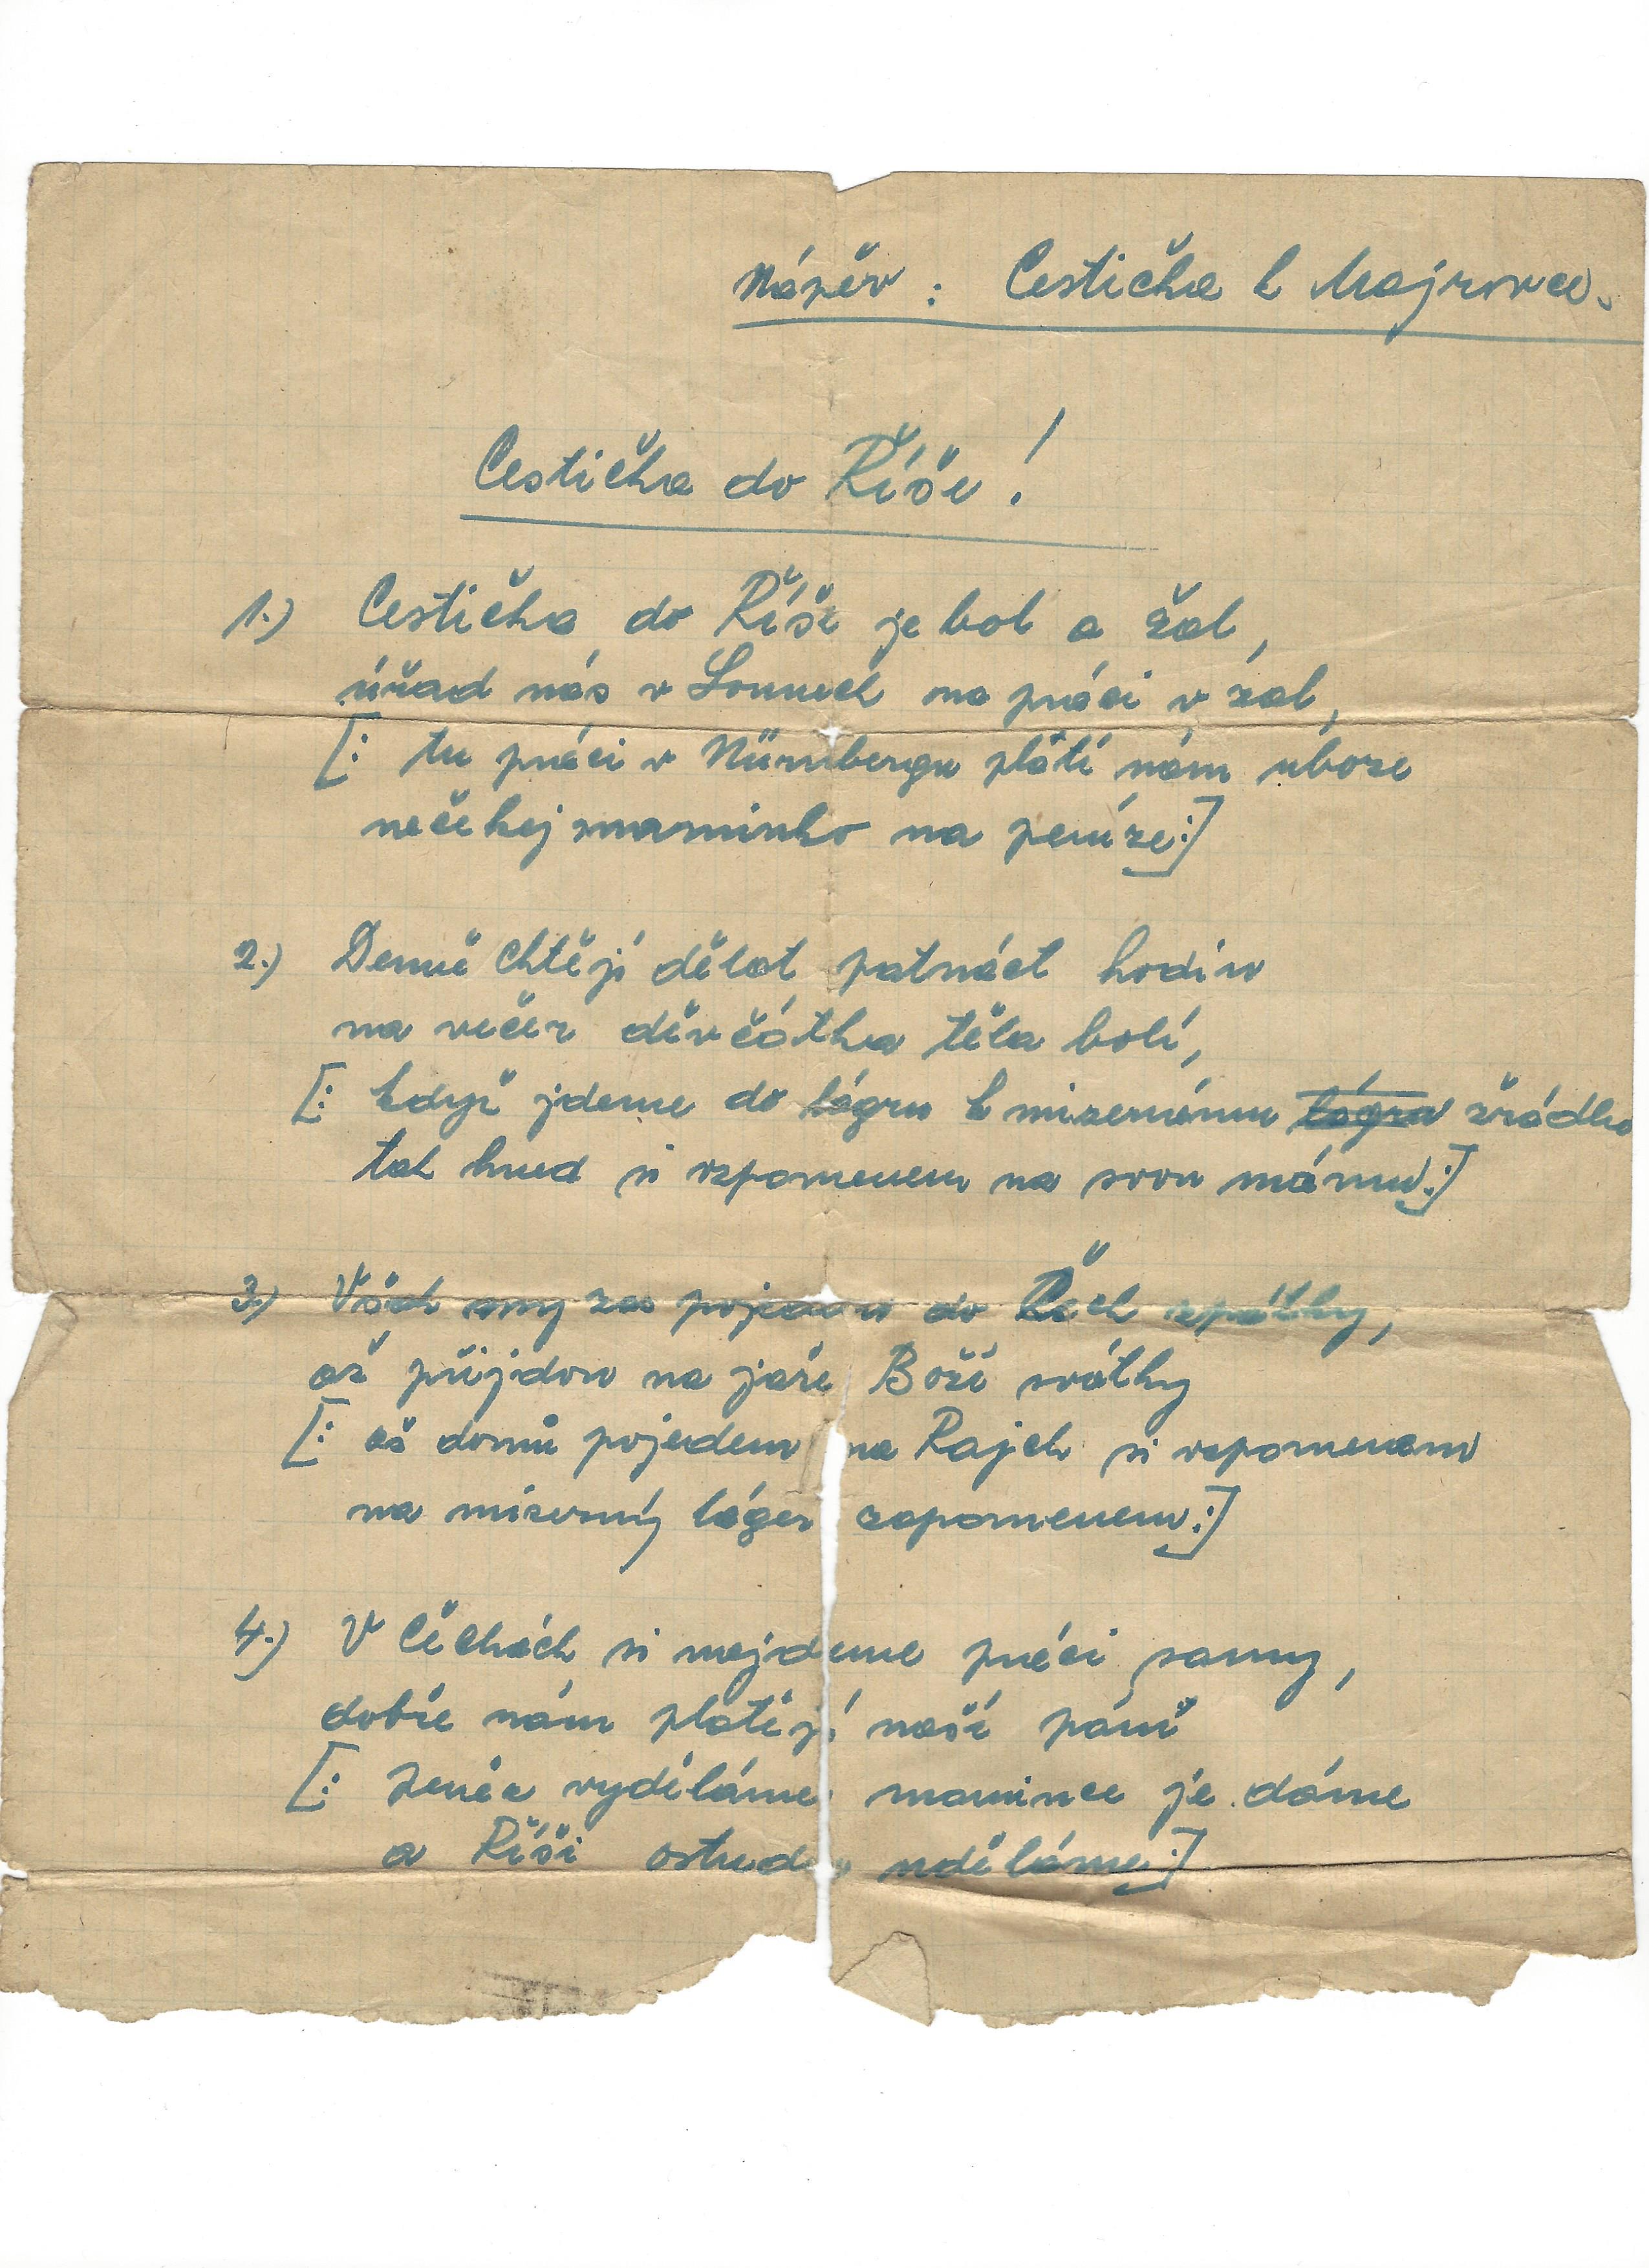 Nápěv: Cestička k Majrovce.
Cestička do Říše!
1.) Cestička do Říše je bol a žal,
úřad nás v Lounech na práci vzal,
[: tu práci v Nürnbergu platí nám uboze
nečekej maminko na peníze:]
2.) Denně chtějí dělat patnáct hodin
na večer děvčátka těla bolí,
[: když jdeme do lágru k mizernému lágru žrádlu
tak hned si vzpomenem na svou mámu:]
3.) Však my zas pojedem do Čech zpátky,
až přijdou na jaře Boží svátky
[: až domů pojedem na Rajch si vzpomenem
na mizerný láger zapomenem:]
4.) V Čechách si najdeme práci samy,
dobře nám platějí naší páni
[: peníz vyděláme mamince je dáme
a Říši ostudu uděláme:]